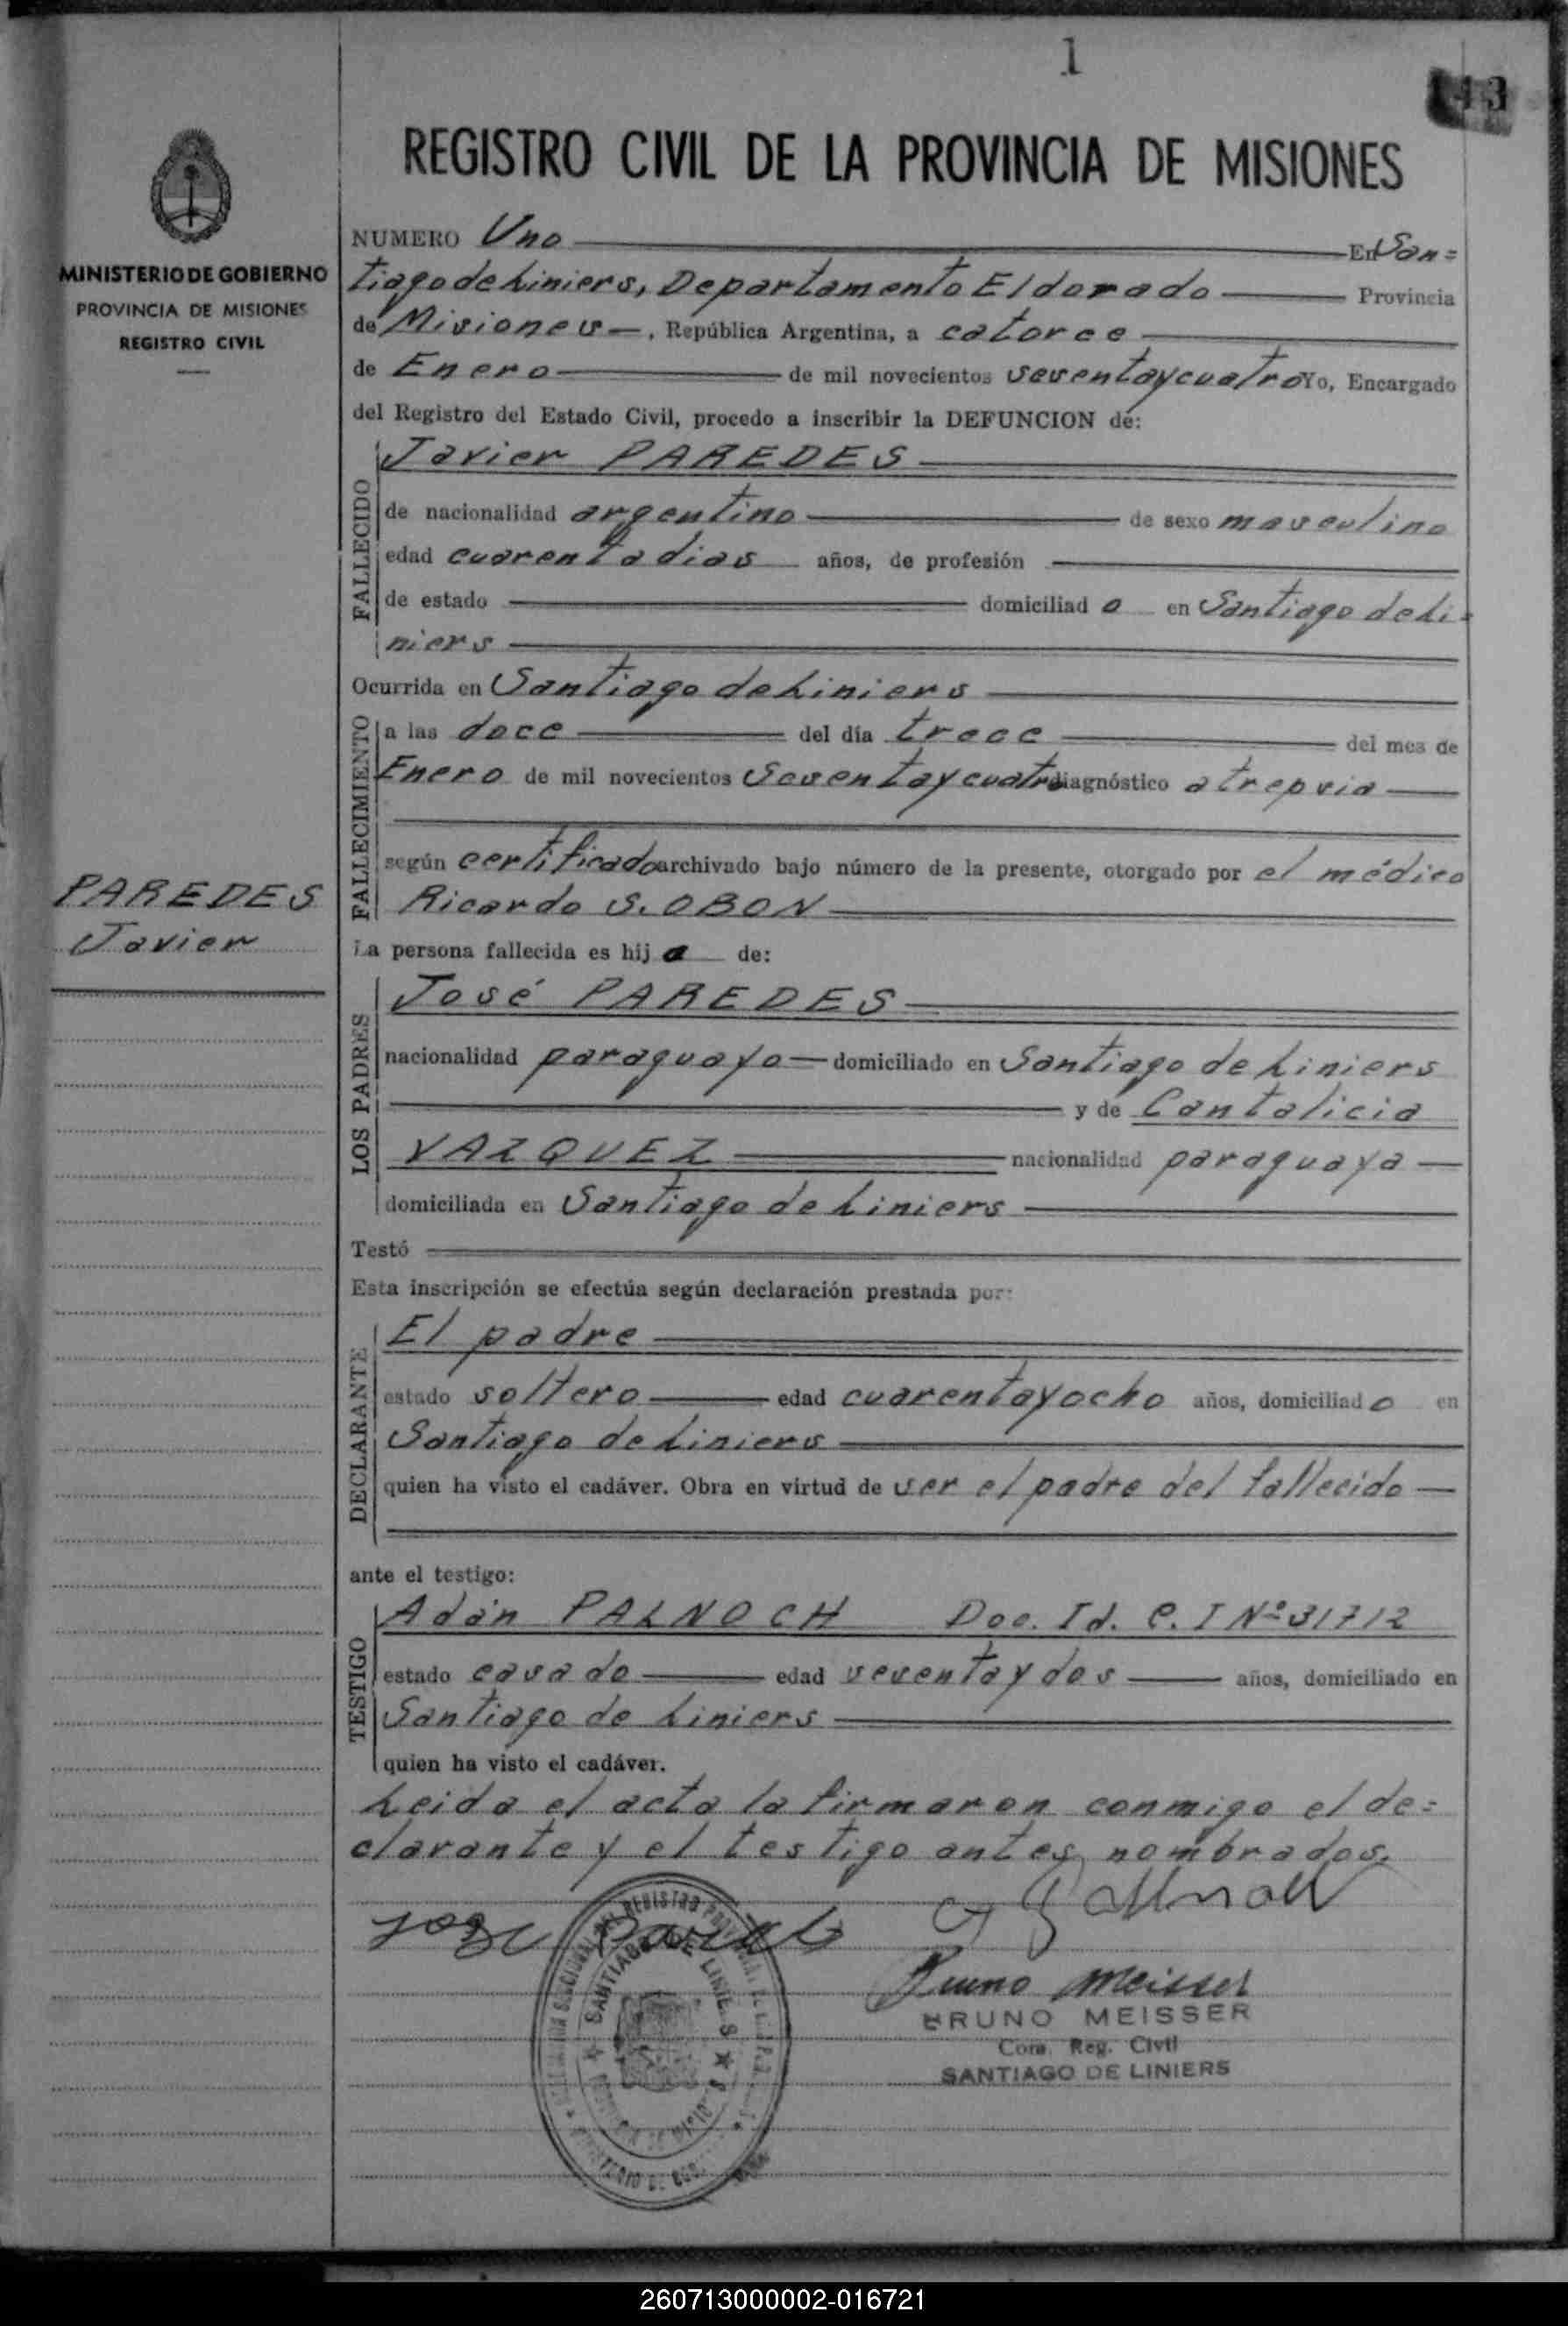 1
43
REGISTRO CIVIL DE LA PROVINCIA DE MISIONES
MINISTERIO DE GOBIERNO
PROVINCIA DE MISIONES
REGISTRO CIVIL
NUMERO Uno En San=
tiago de Liniers, Departamento Eldorado Provincia
de Misiones, República Argentina, a catorce
de Enero de mil novecientos sesentaycuatro Yo, Encargado
del Registro del Estado Civil, procedo a inscribir la DEFUNCION de:
FALLECIDO
Javier PAREDES
de nacionalidad argentino de sexo masculino
edad cuarenta dias años, de profesión
de estado domiciliad o en Santiago de Li=
niers
Ocurrida en Santiago de Liniers
FALLECIMIENTO
a las doce del día trece del mes de
Enero de mil novecientos Sesentaycuatro diagnóstico atrepsia
según certificado archivado bajo número de la presente, otorgado por el médico
Ricardo S. OBON
PAREDES
Javier
La persona fallecida es hij o de:
LOS PADRES
José PAREDES
nacionalidad paraguayo domiciliado en Santiago de Liniers
y de Cantalicia
VAZQUEZ nacionalidad paraguaya
domiciliada en Santiago de Liniers
Testó
Esta inscripción se efectúa según declaración prestada por:
DECLARANTE
El padre
estado soltero edad cuarentayocho años, domiciliad o en
Santiago de Liniers
quien ha visto el cadáver. Obra en virtud de ser el padre del fallecido
ante el testigo:
TESTIGO
Adán PALNOCH Doc. Id. C. I Nº 31712
estado casado edad sesentaydos años, domiciliado en
Santiago de Liniers
quien ha visto el cadáver.
Leida el acta la firmaron conmigo el de=
clarante y el testigo antes nombrados.
Jose
Bruno Meisser
BRUNO MEISSER
Com. Reg. Civil
SANTIAGO DE LINIERS
SANTIAGO DE LINIERS
260713000002-016721